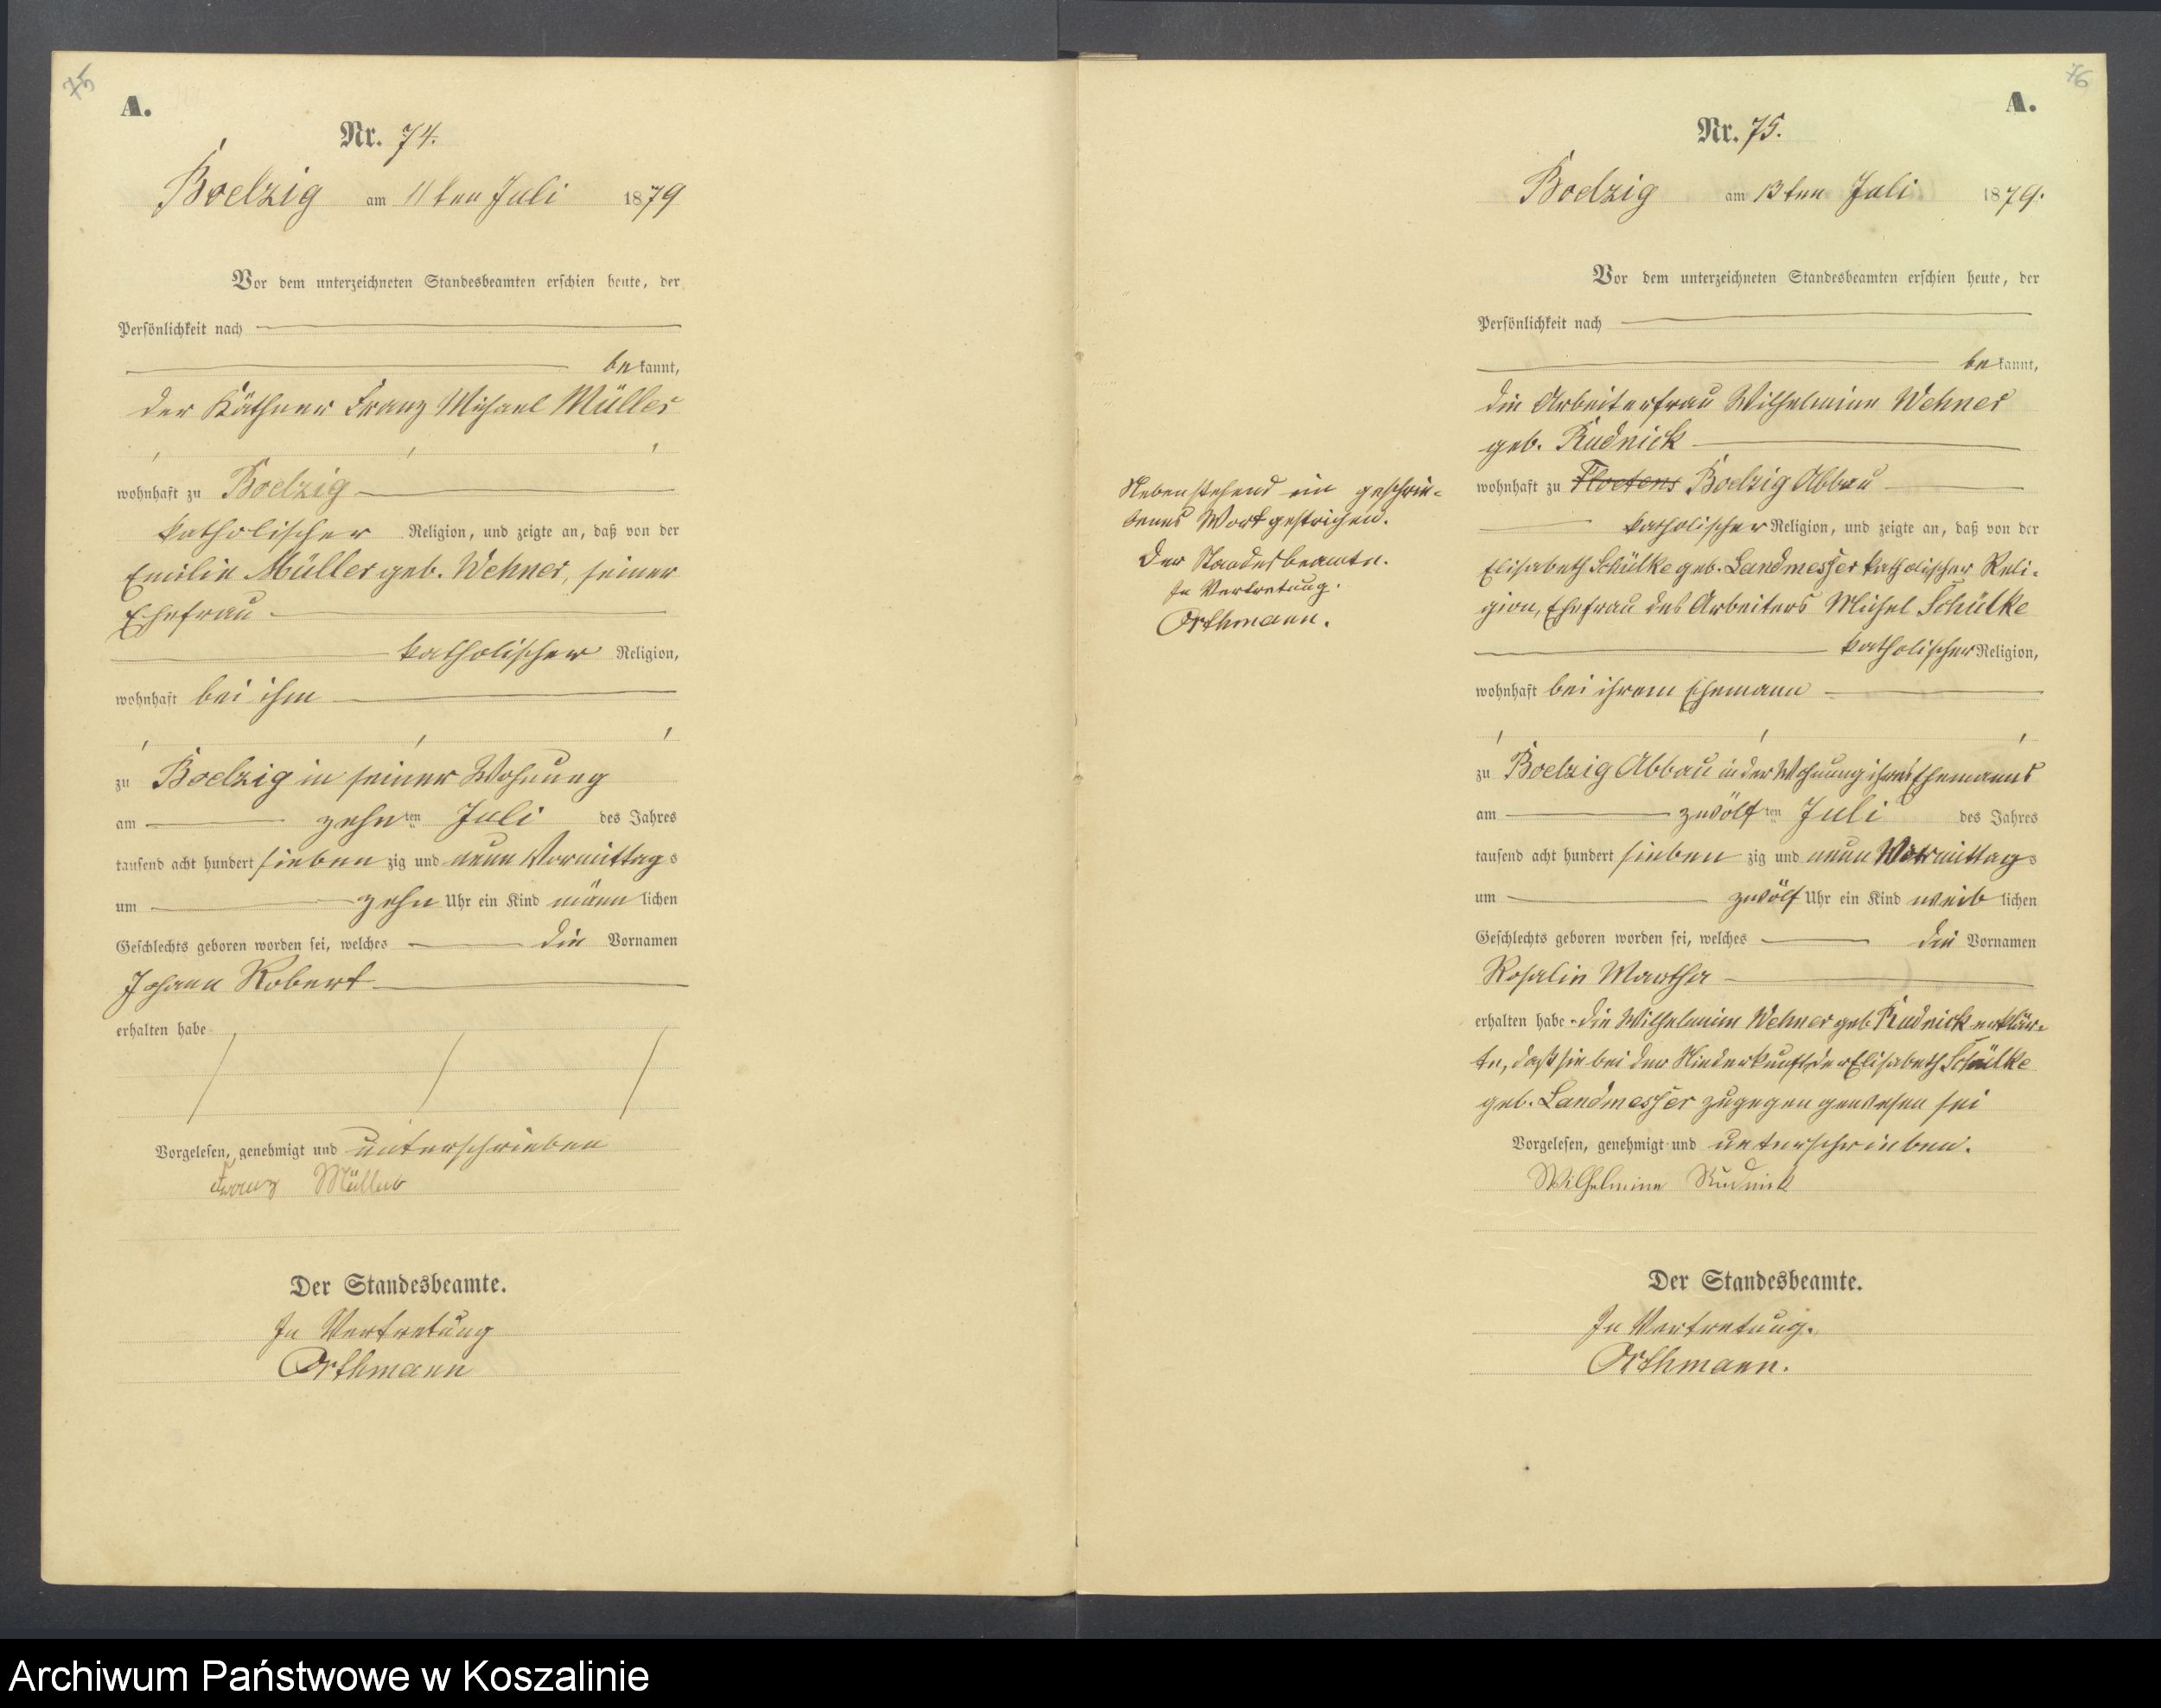 75
A.
Nr. 74.
Boelzig am 11ten Juli 1879
Vor dem unterzeichneten Standesbeamten erschien heute, der
Persönlichkeit nach
bekannt,
der Käthner Franz Michael Müller
wohnhaft zu Boelzig
katholischer Religion, und zeigte an, daß von der
Emilie Müller geb. Wehner, seiner
Ehefrau
katholischer Religion,
wohnhaft bei ihm
zu Boelzig in seiner Wohnung
am zehnten Juli des Jahres
tausend acht hundert siebenzig und neun Vormittags
um zehn Uhr ein Kind männlichen
Geschlechts geboren worden sei, welches die Vornamen
Johann Robert
erhalten habe
Vorgelesen, genehmigt und unterschrieben
Franz Müller
Der Standesbeamte.
In Vertretung
Orthmann
76
A.
Nr. 75.
Boelzig am 13ten Juli 1879.
Vor dem unterzeichneten Standesbeamten erschien heute, der
Persönlichkeit nach
bekannt,
die Arbeiterfrau Wilhelmine Wehner
geb. Rudnick
wohnhaft zu Floetens Boelzig Abbau
katholischer Religion, und zeigte an, daß von der
Elisabeth Schülke geb. Landmesser katholischer Reli-
gion, Ehefrau des Arbeiters Michel Schülke
katholischer Religion,
wohnhaft bei ihrem Ehemann
zu Boelzig Abbau in der Wohnung ihres Ehemanns
am zwölften Juli des Jahres
tausend acht hundert siebenzig und neun Vormittags
um zwölf Uhr ein Kind weiblichen
Geschlechts geboren worden sei, welches die Vornamen
Rosalie Martha
erhalten habe. die Wilhelmine Wehner geb. Rudnick erklär-
te, daß sie bei der Niederkunft der Elisabeth Schülke
geb. Landmesser zugegen gewesen sei
Vorgelesen, genehmigt und unterschrieben.
Wilhelmine Rudnick
Der Standesbeamte.
In Vertretung.
Orthmann.
Nebenstehend ein geschrie-
benes Wort gestrichen.
Der Standesbeamte.
In Vertretung.
Orthmann.
Archiwum Państwowe w Koszalinie